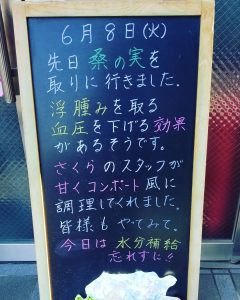 6月8日(火)
先日 桑の実を
取りに行きました.
浮腫みを取る
血圧を下げる効果
があるそうです。
さくらのスタッフが
甘くコンポート風に
調理してくれました.
皆様も やってみて。
今日は 水分補給
忘れずに!!